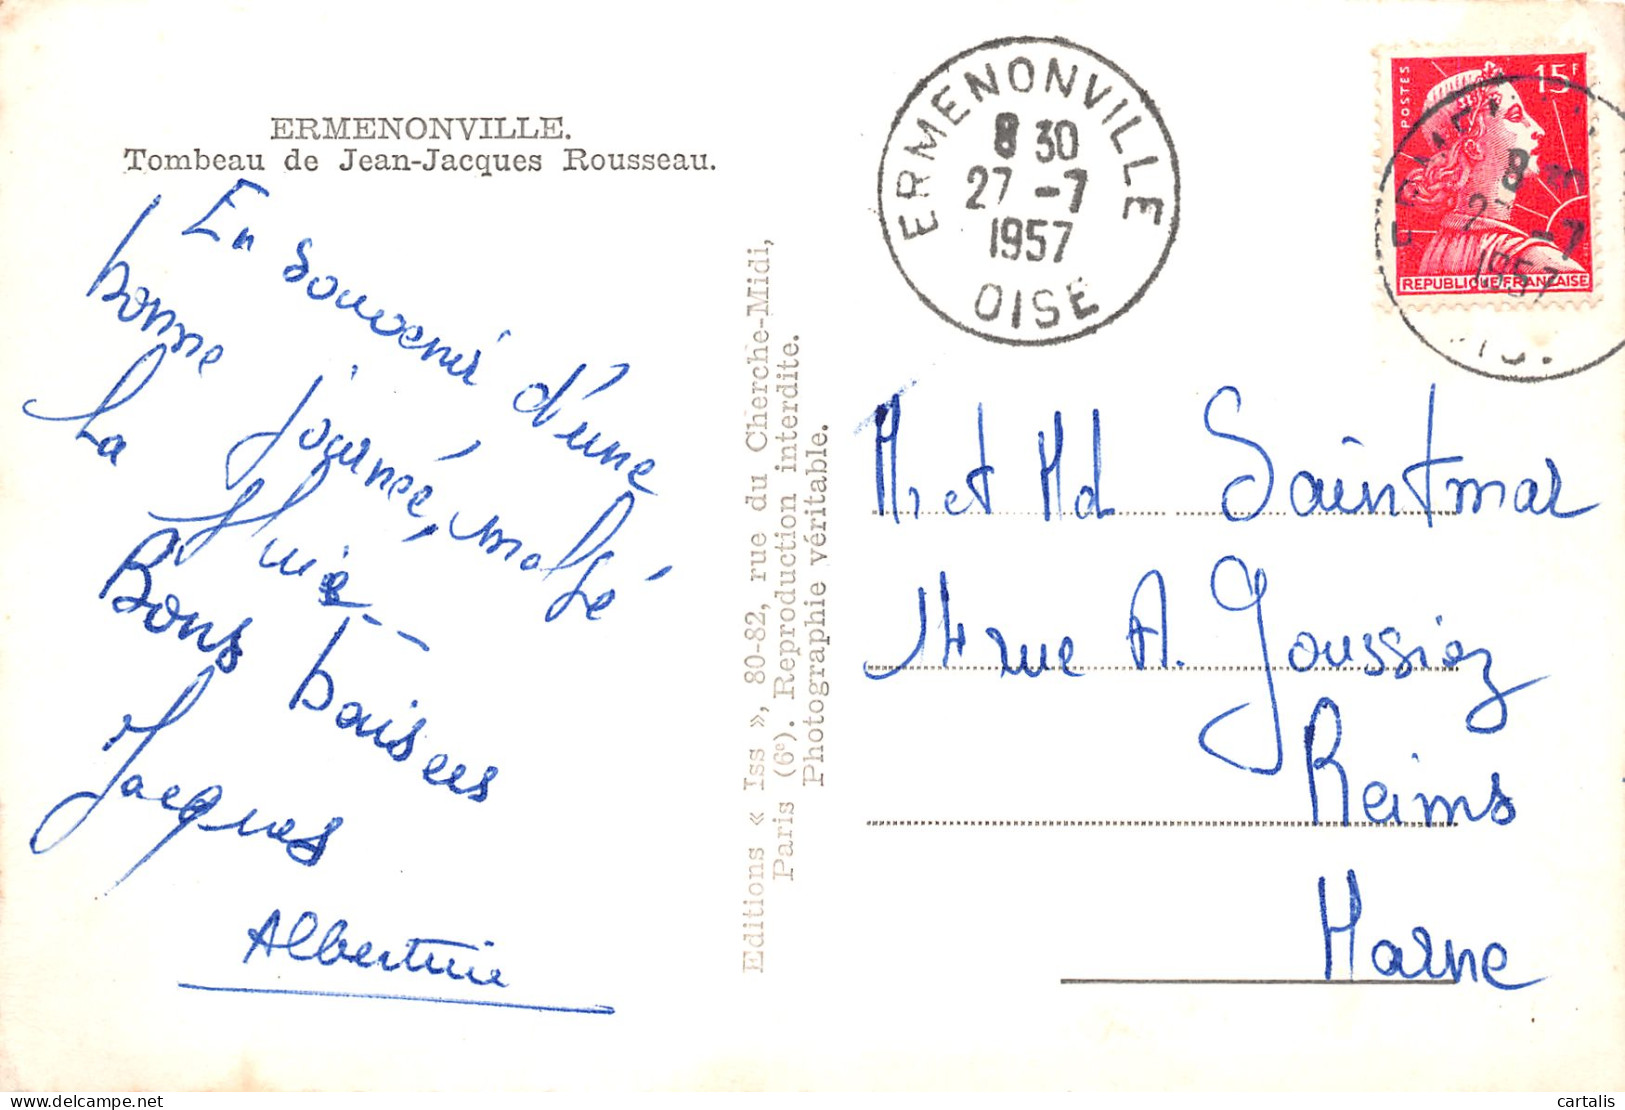 ERMENONVILLE.
Tombeau de Jean-Jacques Rousseau.
En souvenir d'une
bonne journée, malgré
la pluie
Bons baisers
Jacques
Albertine
Editions « Iss », 80-82, rue du Cherche-Midi,
Paris (6e). Reproduction interdite.
Photographie véritable.
ERMENONVILLE
8 30
27 -7
1957
OISE
POSTES
15F
REPUBLIQUE FRANÇAISE
8 30
27 -7
1957
Mr et Md Saintmar
14 rue A. Goussiez
Reims
Marne
cartalis
delcampe.net